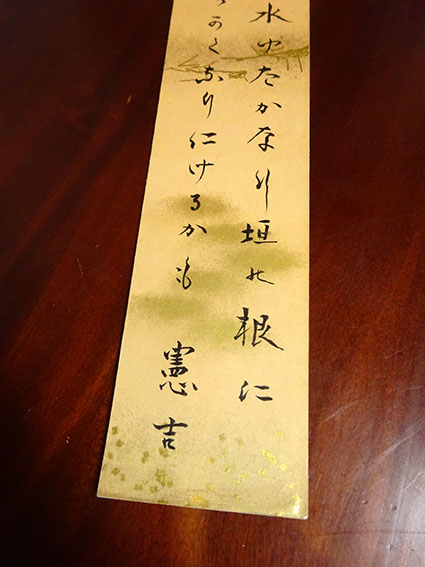 水ゆたかなり垣の根に
くなりにけるかも
憲吉